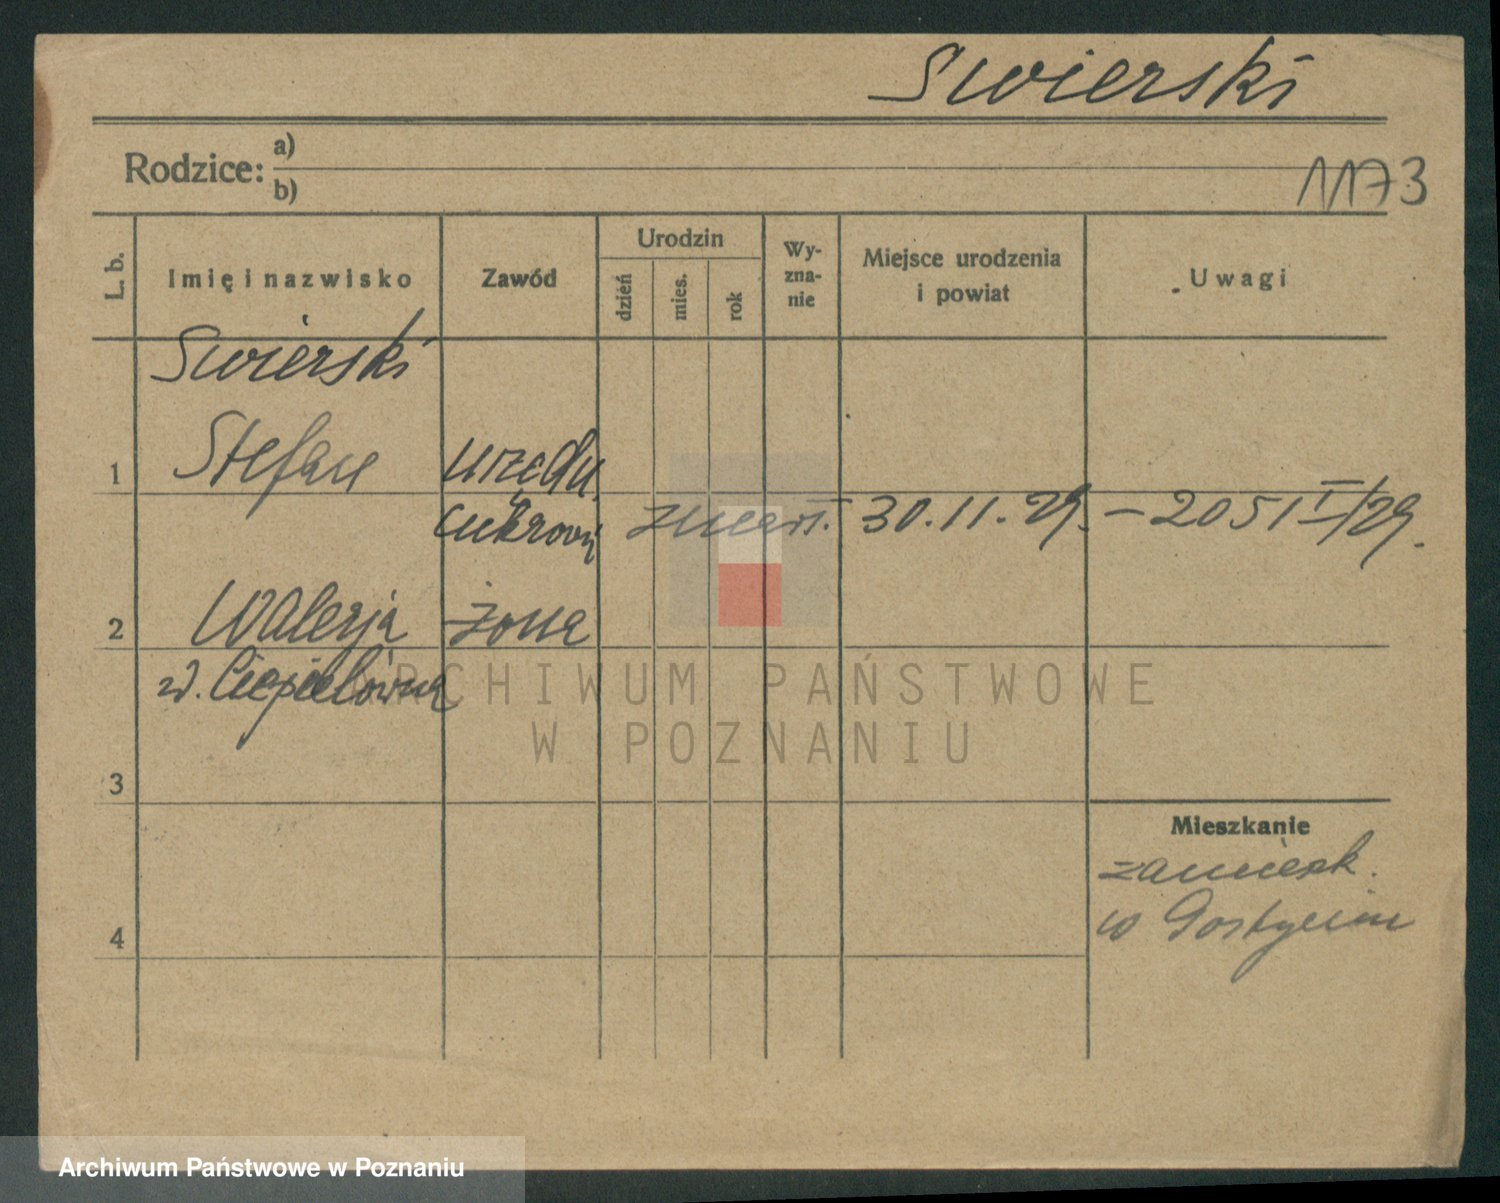 Swierski
Rodzice: a)
b)
1173
L. b.
Imię i nazwisko
Zawód
Urodzin
dzień
mies.
rok
Wy-
zna-
nie
Miejsce urodzenia
i powiat
Uwagi
Swierski
1 Stefan urzędn.
cukrown zmarł. 30.11.29. – 2051 I/29.
2 Walerja żona
z d. Ciepielówna
ARCHIWUM PAŃSTWOWE
W POZNANIU
3
Mieszkanie
zamieszk.
w Gostyniu
4
Archiwum Państwowe w Poznaniu